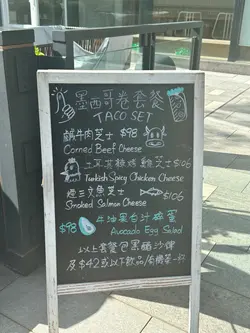 墨西哥卷套餐
TACO SET
鹹牛肉芝士 $98
Corned Beef Cheese
土耳其辣雞芝士 $106
Turkish Spicy Chicken Cheese
煙三文魚芝士 $106
Smoked Salmon Cheese
$98 牛油果白汁碎蛋
Avocado Egg Salad
以上套餐包黑醋沙律
及$42或以下飲品/有機茶一杯